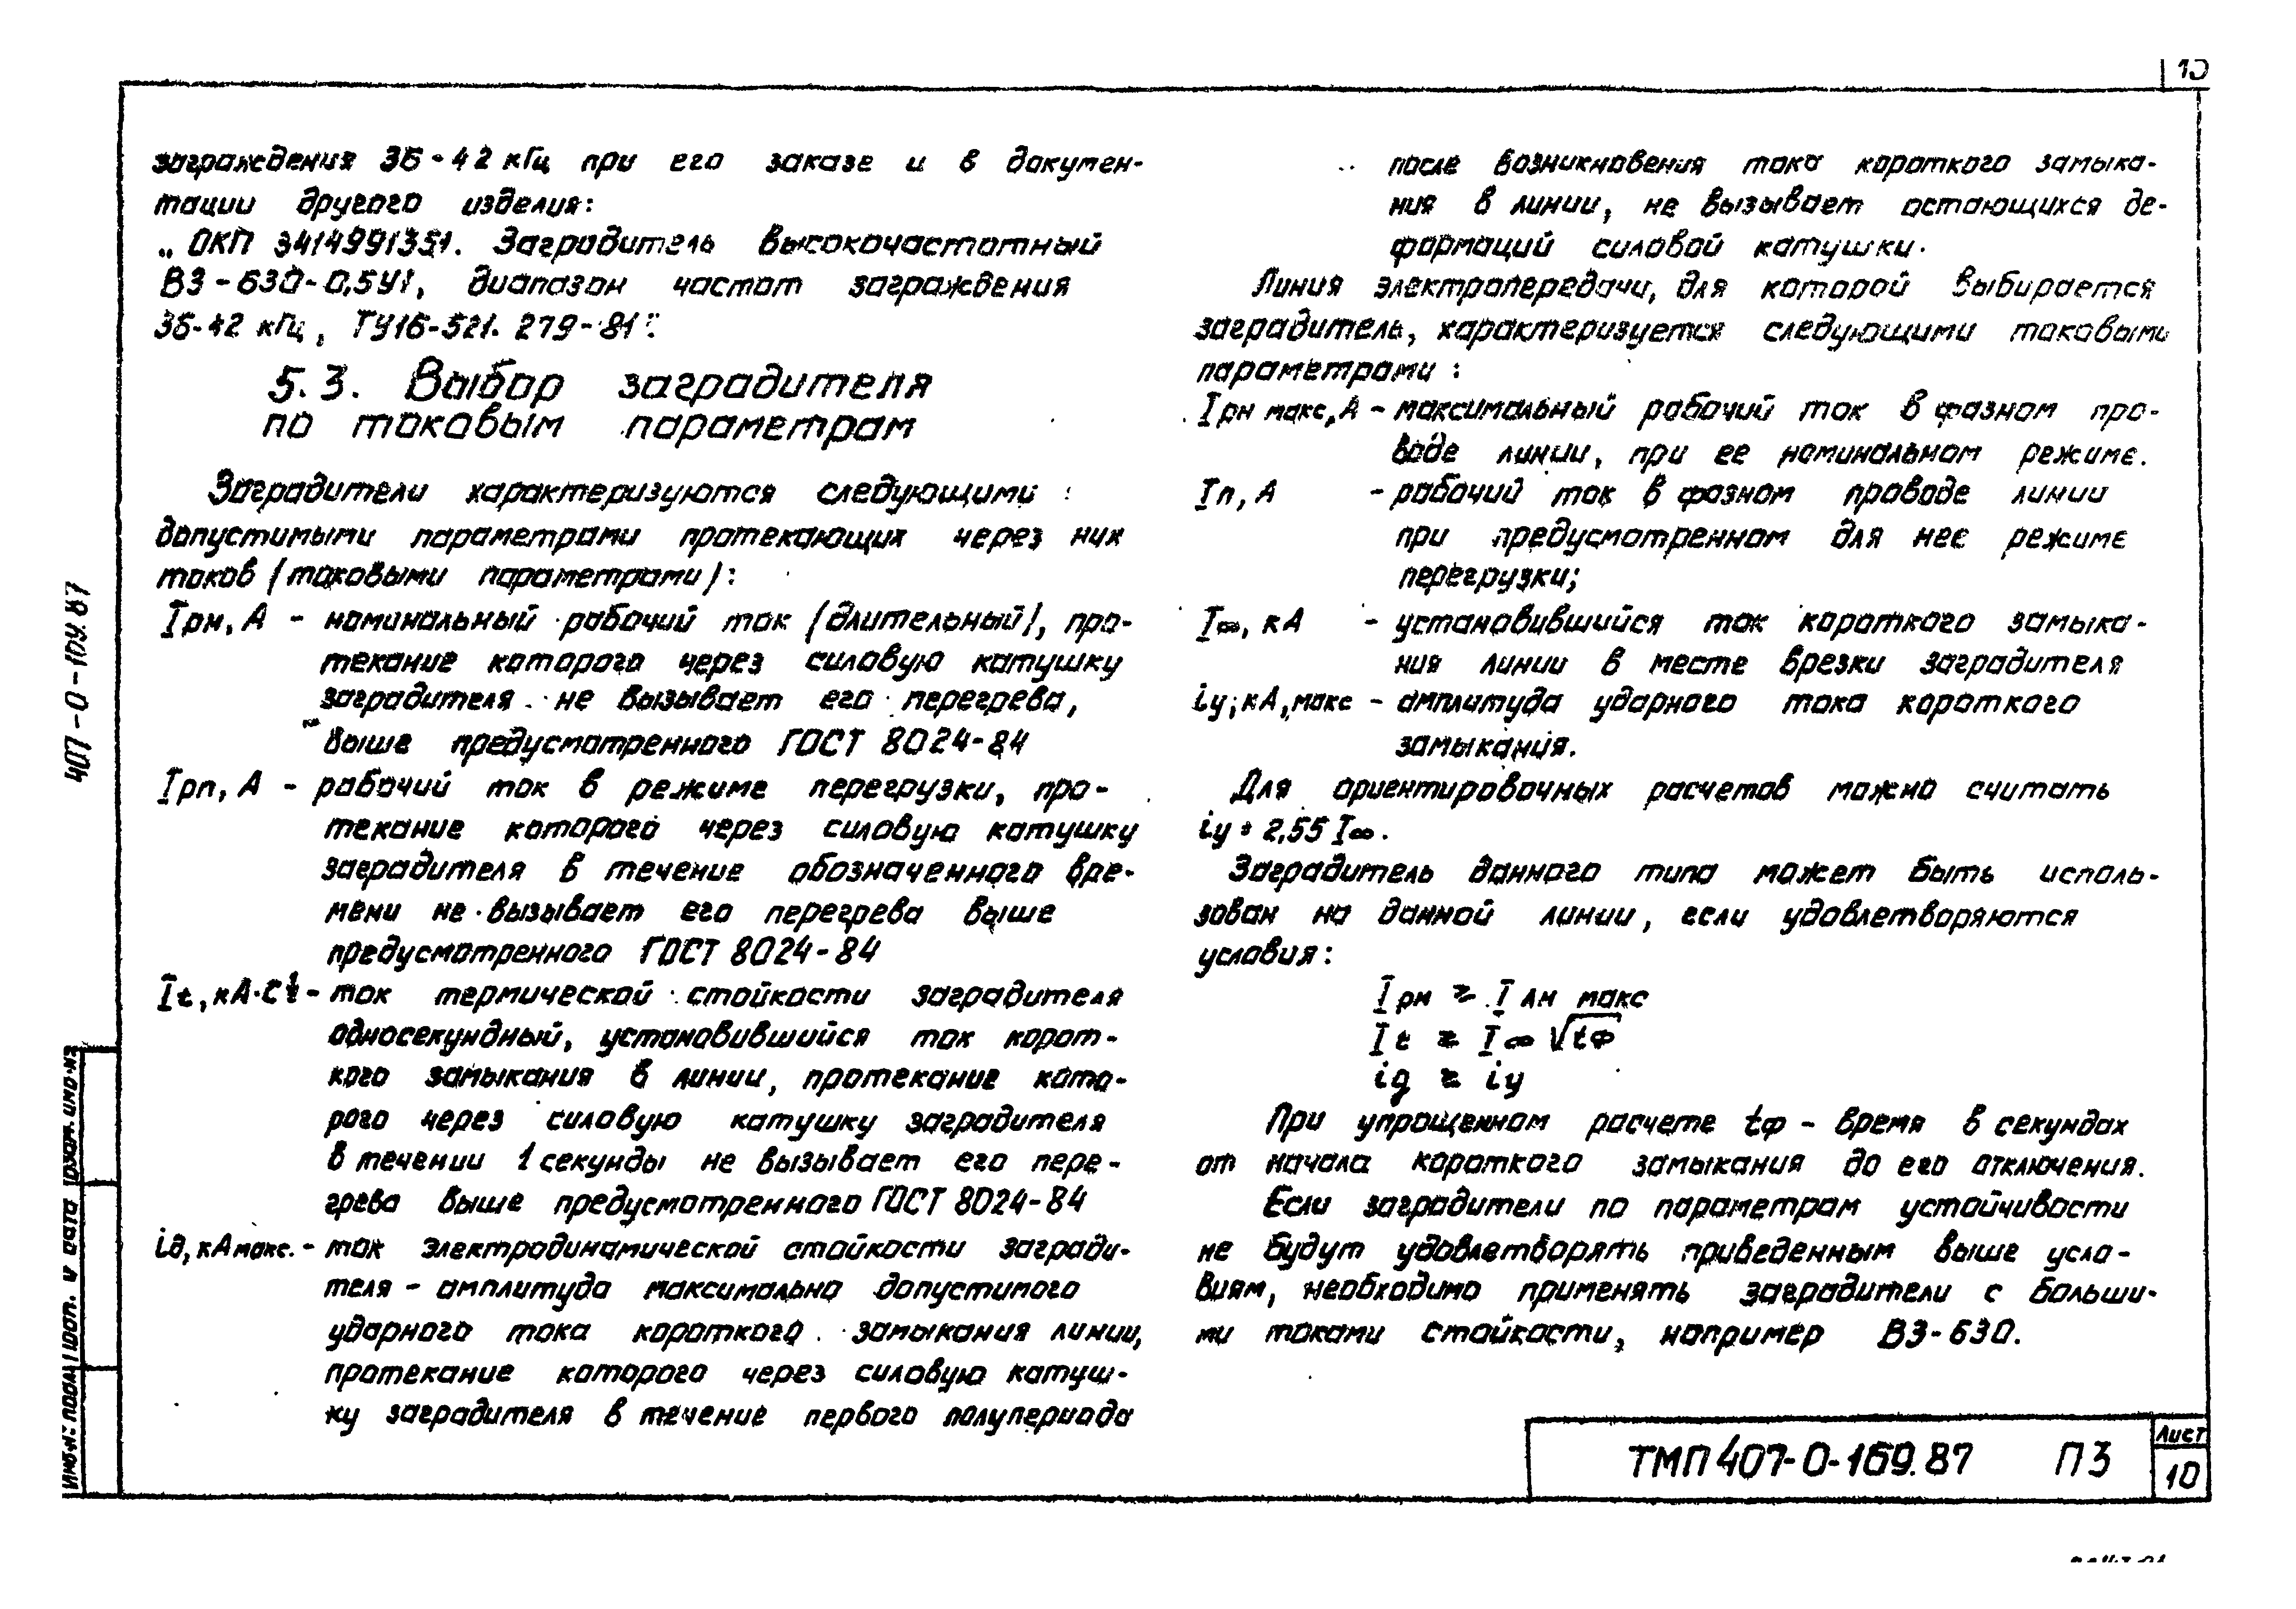 10
заграждения 36-42 кГц при его заказе и в докумен-
тации другого изделия:
„ ОКП 3414991351. Заградитель высокочастотный
ВЗ-630-0,5У1, диапазон частот заграждения
36-42 кГц, ТУ16-521.279-81".
5.3. Выбор заградителя
по токовым параметрам
Заградители характеризуются следующими
допустимыми параметрами протекающих через них
токов (токовыми параметрами):
Iрн, А - номинальный рабочий ток (длительный), про-
текание которого через силовую катушку
заградителя не вызывает его перегрева,
выше предусмотренного ГОСТ 8024-84
Iрп, А - рабочий ток в режиме перегрузки, про-
текание которого через силовую катушку
заградителя в течение обозначенного вре-
мени не вызывает его перегрева выше
предусмотренного ГОСТ 8024-84
It, кА·С½ - ток термической стойкости заградителя
односекундный, установившийся ток корот-
кого замыкания в линии, протекание кото-
рого через силовую катушку заградителя
в течении 1 секунды не вызывает его пере-
грева выше предусмотренного ГОСТ 8024-84
iд, кА макс. - ток электродинамической стойкости загради-
теля - амплитуда максимально допустимого
ударного тока короткого замыкания линии,
протекание которого через силовую катуш-
ку заградителя в течение первого полупериода
после возникновения тока короткого замыка-
ния в линии, не вызывает остающихся де-
формаций силовой катушки.
Линия электропередачи, для которой выбирается
заградитель, характеризуется следующими токовыми
параметрами:
Iрн макс, А - максимальный рабочий ток в фазном про-
воде линии, при ее номинальном режиме.
Iп, А - рабочий ток в фазном проводе линии
при предусмотренном для нее режиме
перегрузки;
I∞, кА - установившийся ток короткого замыка-
ния линии в месте врезки заградителя
iу; кА, макс - амплитуда ударного тока короткого
замыкания.
Для ориентировочных расчетов можно считать
iу = 2,55 I∞.
Заградитель данного типа может быть исполь-
зован на данной линии, если удовлетворяются
условия:
Iрн ≥ Iлн макс
It ≥ I∞ √tф
ig ≥ iу
При упрощенном расчете tф - время в секундах
от начала короткого замыкания до его отключения.
Если заградители по параметрам устойчивости
не будут удовлетворять приведенным выше усло-
виям, необходимо применять заградители с больши-
ми токами стойкости, например ВЗ-630.
ТМП 407-0-169.87 ПЗ
Лист
10
407-0-169.87
Взам. инв. №
Подп. и дата
Инв. № подл.